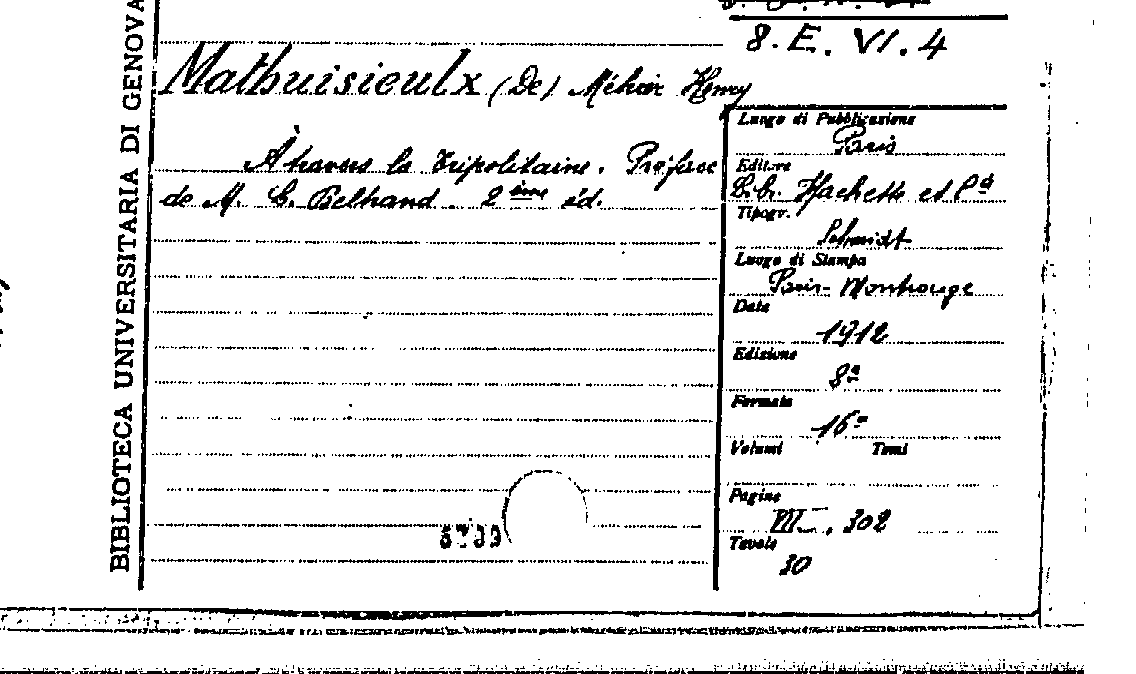 BIBLIOTECA UNIVERSITARIA DI GENOVA
8. E. VI. 4
Mathuisieulx (De) Méhier Henry
À travers la Tripolitaine. Préface
de M. C. Belhand. 2ème éd.
Luogo di Pubblicazione
Paris
Editore
Lib. Hachette et Cª
Tipogr.
Schmidt
Luogo di Stampa
Paris-Montrouge
Data
1912
Edizione
8ª
Formato
16º
Volumi Tomi
Pagine
VII, 302
Tavole
30